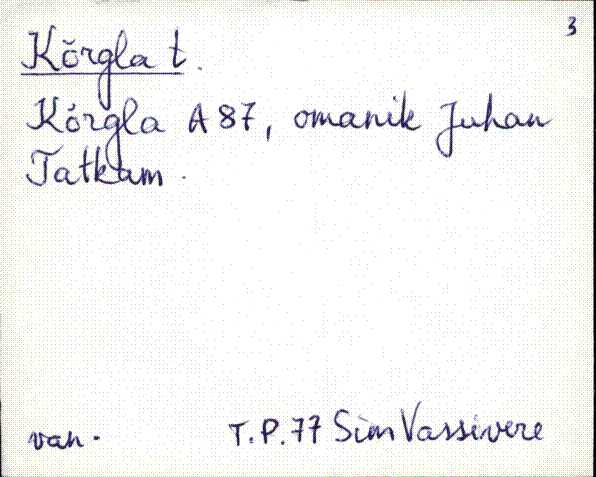 3
Kõrgla t.
Kõrgla A 87, omanik Juhan
Tatkam.
van. T.P.77 Sim Vassivere